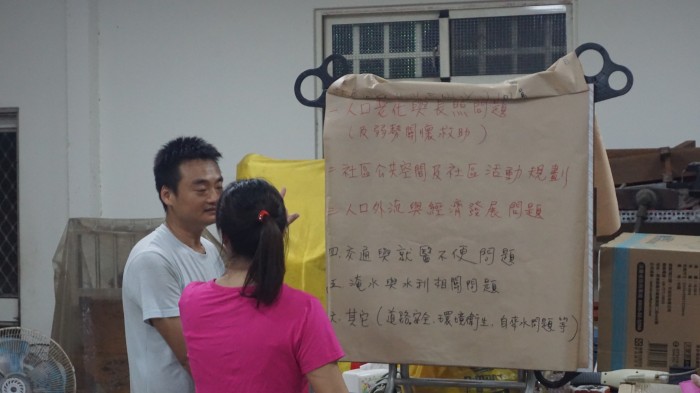 一.人口老化與長照問題
(及弱勢關懷救助)
二.社區公共空間及社區活動規劃
三.人口外流與經濟發展問題
四.交通與就醫不便問題
五.淹水與水利相關問題
六.其它(道路安全.環境衛生.自來水問題等)